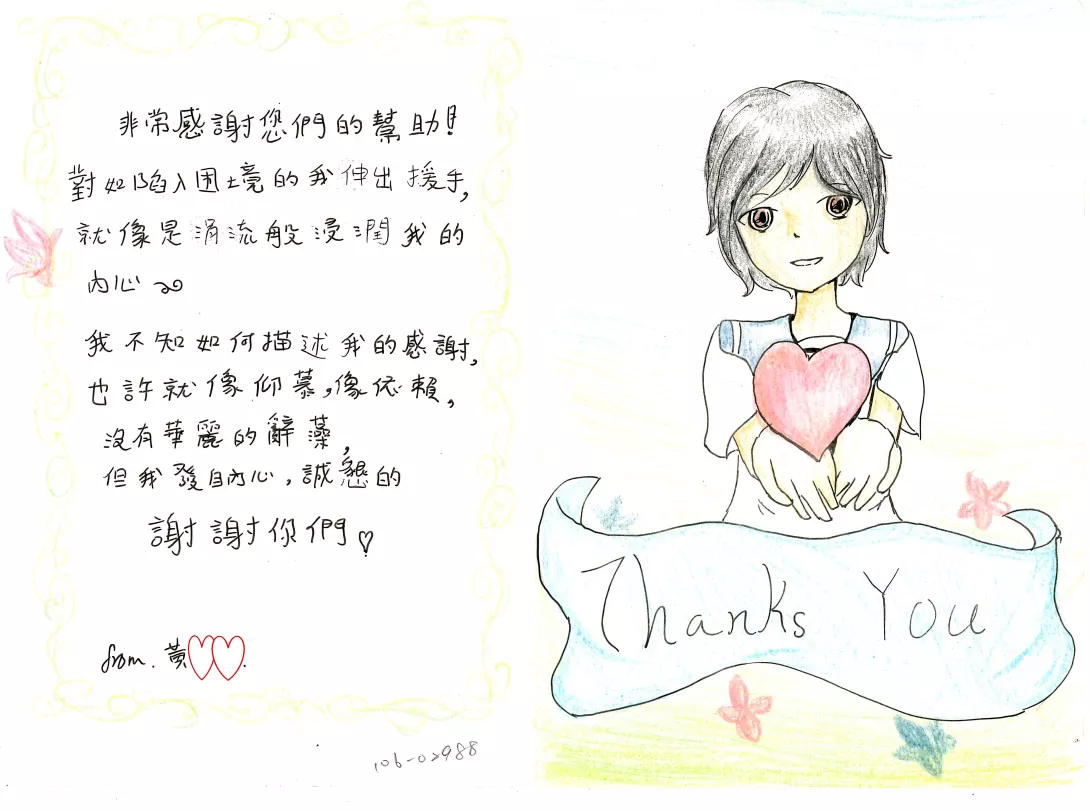 非常感謝您們的幫助!
對如陷入困境的我伸出援手,
就像是涓流般浸潤我的
內心
我不知如何描述我的感謝,
也許就像仰慕,像依賴,
沒有華麗的辭藻,
但我發自內心,誠懇的
謝謝你們
from. 黃
106-02988
Thanks You